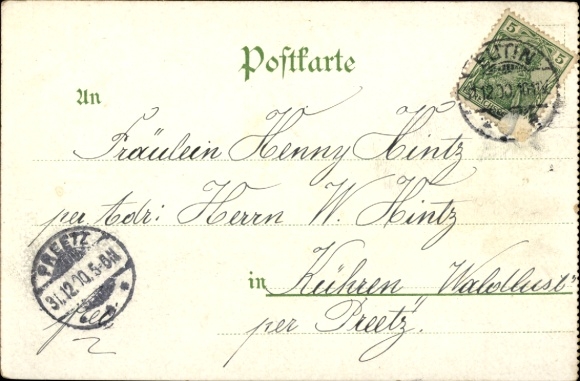 Postkarte
5 5
EUTIN
31.12.00.10-11V.
An
Fräulein Henny Hintz
per Adr: Herrn W. Hintz
PREETZ
31.12.00.5-6N
in Kühren "Waldlust"
per Preetz.